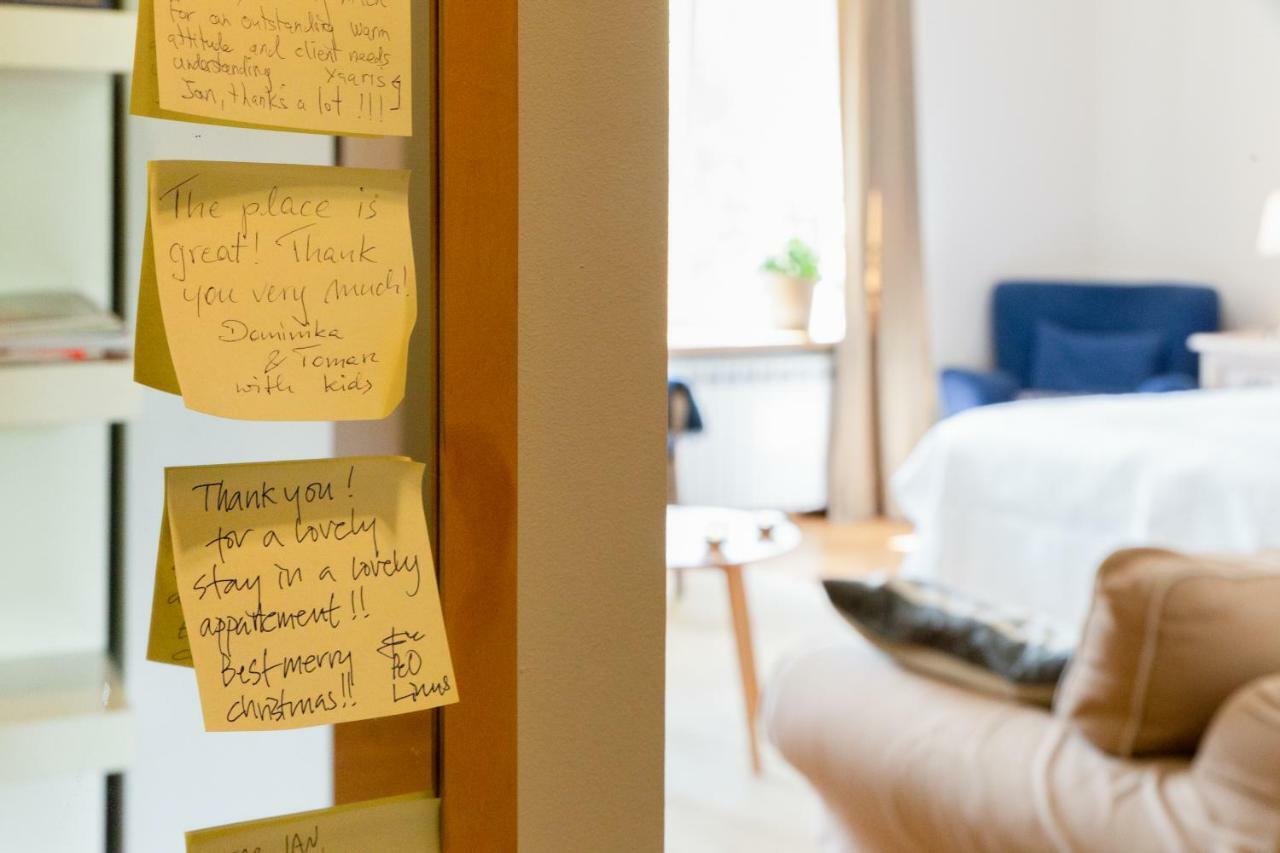 for an outstanding warm
attitude and client needs
understanding
Jan, thanks a lot !!!
The place is
great! Thank
you very much!
Dominika
& Tomek
with kids
Thank you!
for a lovely
stay in a lovely
appartement!!
Best merry
christmas!!
Linus
JAN,